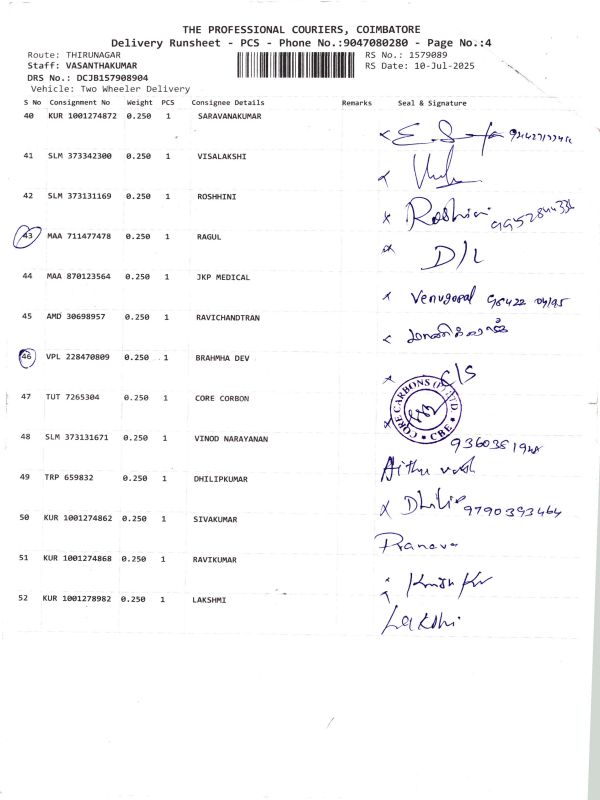 THE PROFESSIONAL COURIERS, COIMBATORE
Delivery Runsheet - PCS - Phone No.:9047080280 - Page No.:4
Route: THIRUNAGAR RS No.: 1579089
Staff: VASANTHAKUMAR RS Date: 10-Jul-2025
DRS No.: DCJB157908904
Vehicle: Two Wheeler Delivery
S No Consignment No Weight PCS Consignee Details Remarks Seal & Signature
40 KUR 1001274872 0.250 1 SARAVANAKUMAR
41 SLM 373342300 0.250 1 VISALAKSHI
42 SLM 373131169 0.250 1 ROSHHINI Roshini 9952844336
43 MAA 711477478 0.250 1 RAGUL D/L
44 MAA 870123564 0.250 1 JKP MEDICAL Venugopal 98422 04195
45 AMD 30698957 0.250 1 RAVICHANDTRAN
46 VPL 228470809 0.250 1 BRAHMHA DEV C/S
47 TUT 7265304 0.250 1 CORE CORBON CORE CARBONS (P) LTD. CBE
48 SLM 373131671 0.250 1 VINOD NARAYANAN
49 TRP 659832 0.250 1 DHILIPKUMAR Dhilip 9790393464
50 KUR 1001274862 0.250 1 SIVAKUMAR Pranava
51 KUR 1001274868 0.250 1 RAVIKUMAR
52 KUR 1001278982 0.250 1 LAKSHMI Lakshi